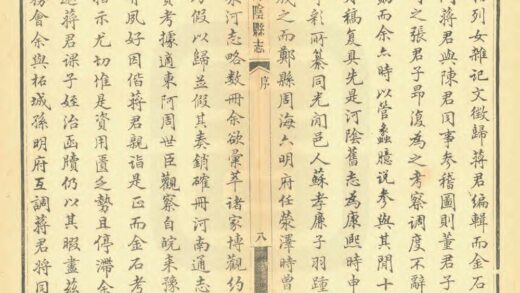 和列女雜記文徵歸蔣君編輯而金石
蔣君與陳君同事參稽圖則董君子
之張君子昻復為之考察調度不辭
而余亦時以管蠡臆說參與其間十
稿復具先是河陰舊志為康熙時申
彩所纂同光間邑人蘇孝廉子羽踵
成之而鄭縣周海六明府任滎澤時曾
陰縣志
序
八
河志略數冊余欲彙萃諸家博觀約
假以歸並假其奏銷確冊河南通志
資考據適東阿周世臣觀察自皖來豫
有夙好因偕蔣君親詣是正而金石考
指示尤切惟是資用匱乏勢且停滯余
蔣君課子姪治函牘仍以其暇盡茲
務會余與柘城孫明府互調蔣君將同